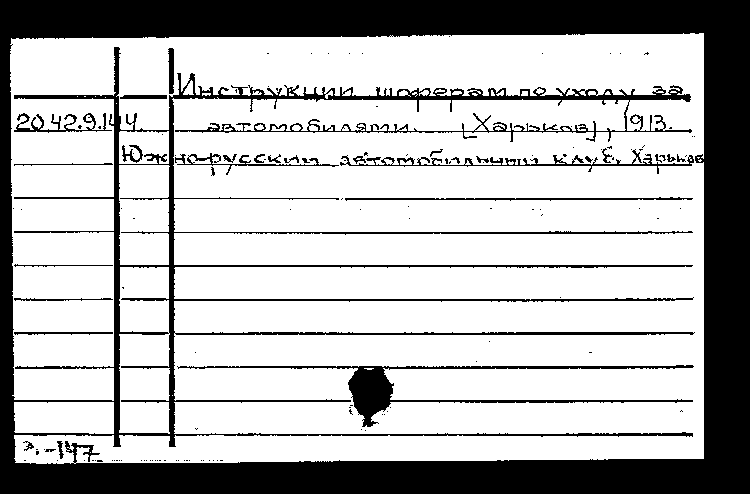 Инструкции шоферам по уходу за
20.42.9.144. автомобилями. [Харьков], 1913.
Южно-русский автомобильный клуб. Харьков
э.-147